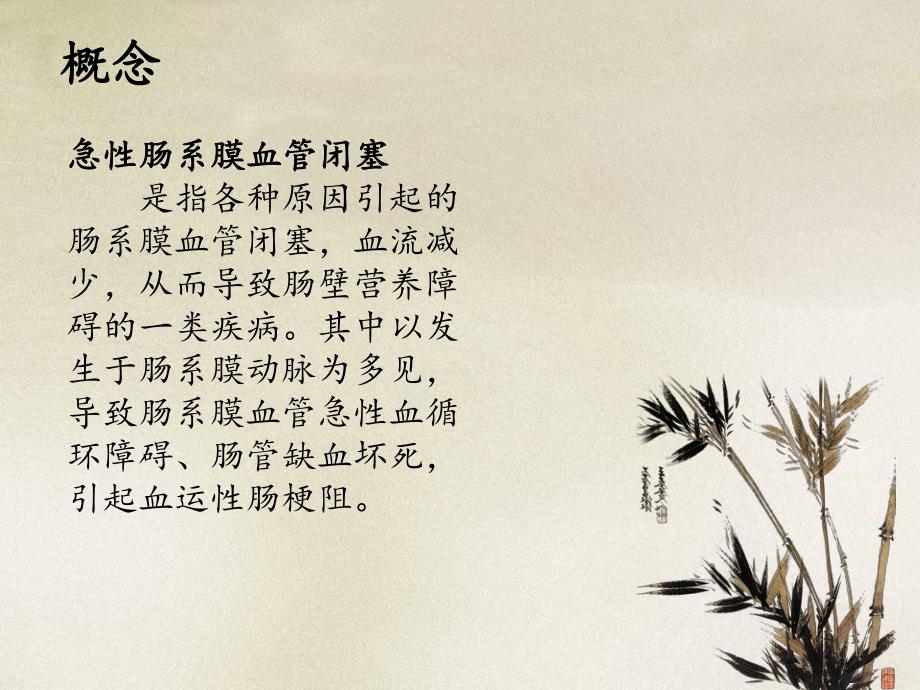 概念
急性肠系膜血管闭塞
是指各种原因引起的
肠系膜血管闭塞，血流减
少，从而导致肠壁营养障
碍的一类疾病。其中以发
生于肠系膜动脉为多见，
导致肠系膜血管急性血循
环障碍、肠管缺血坏死，
引起血运性肠梗阻。